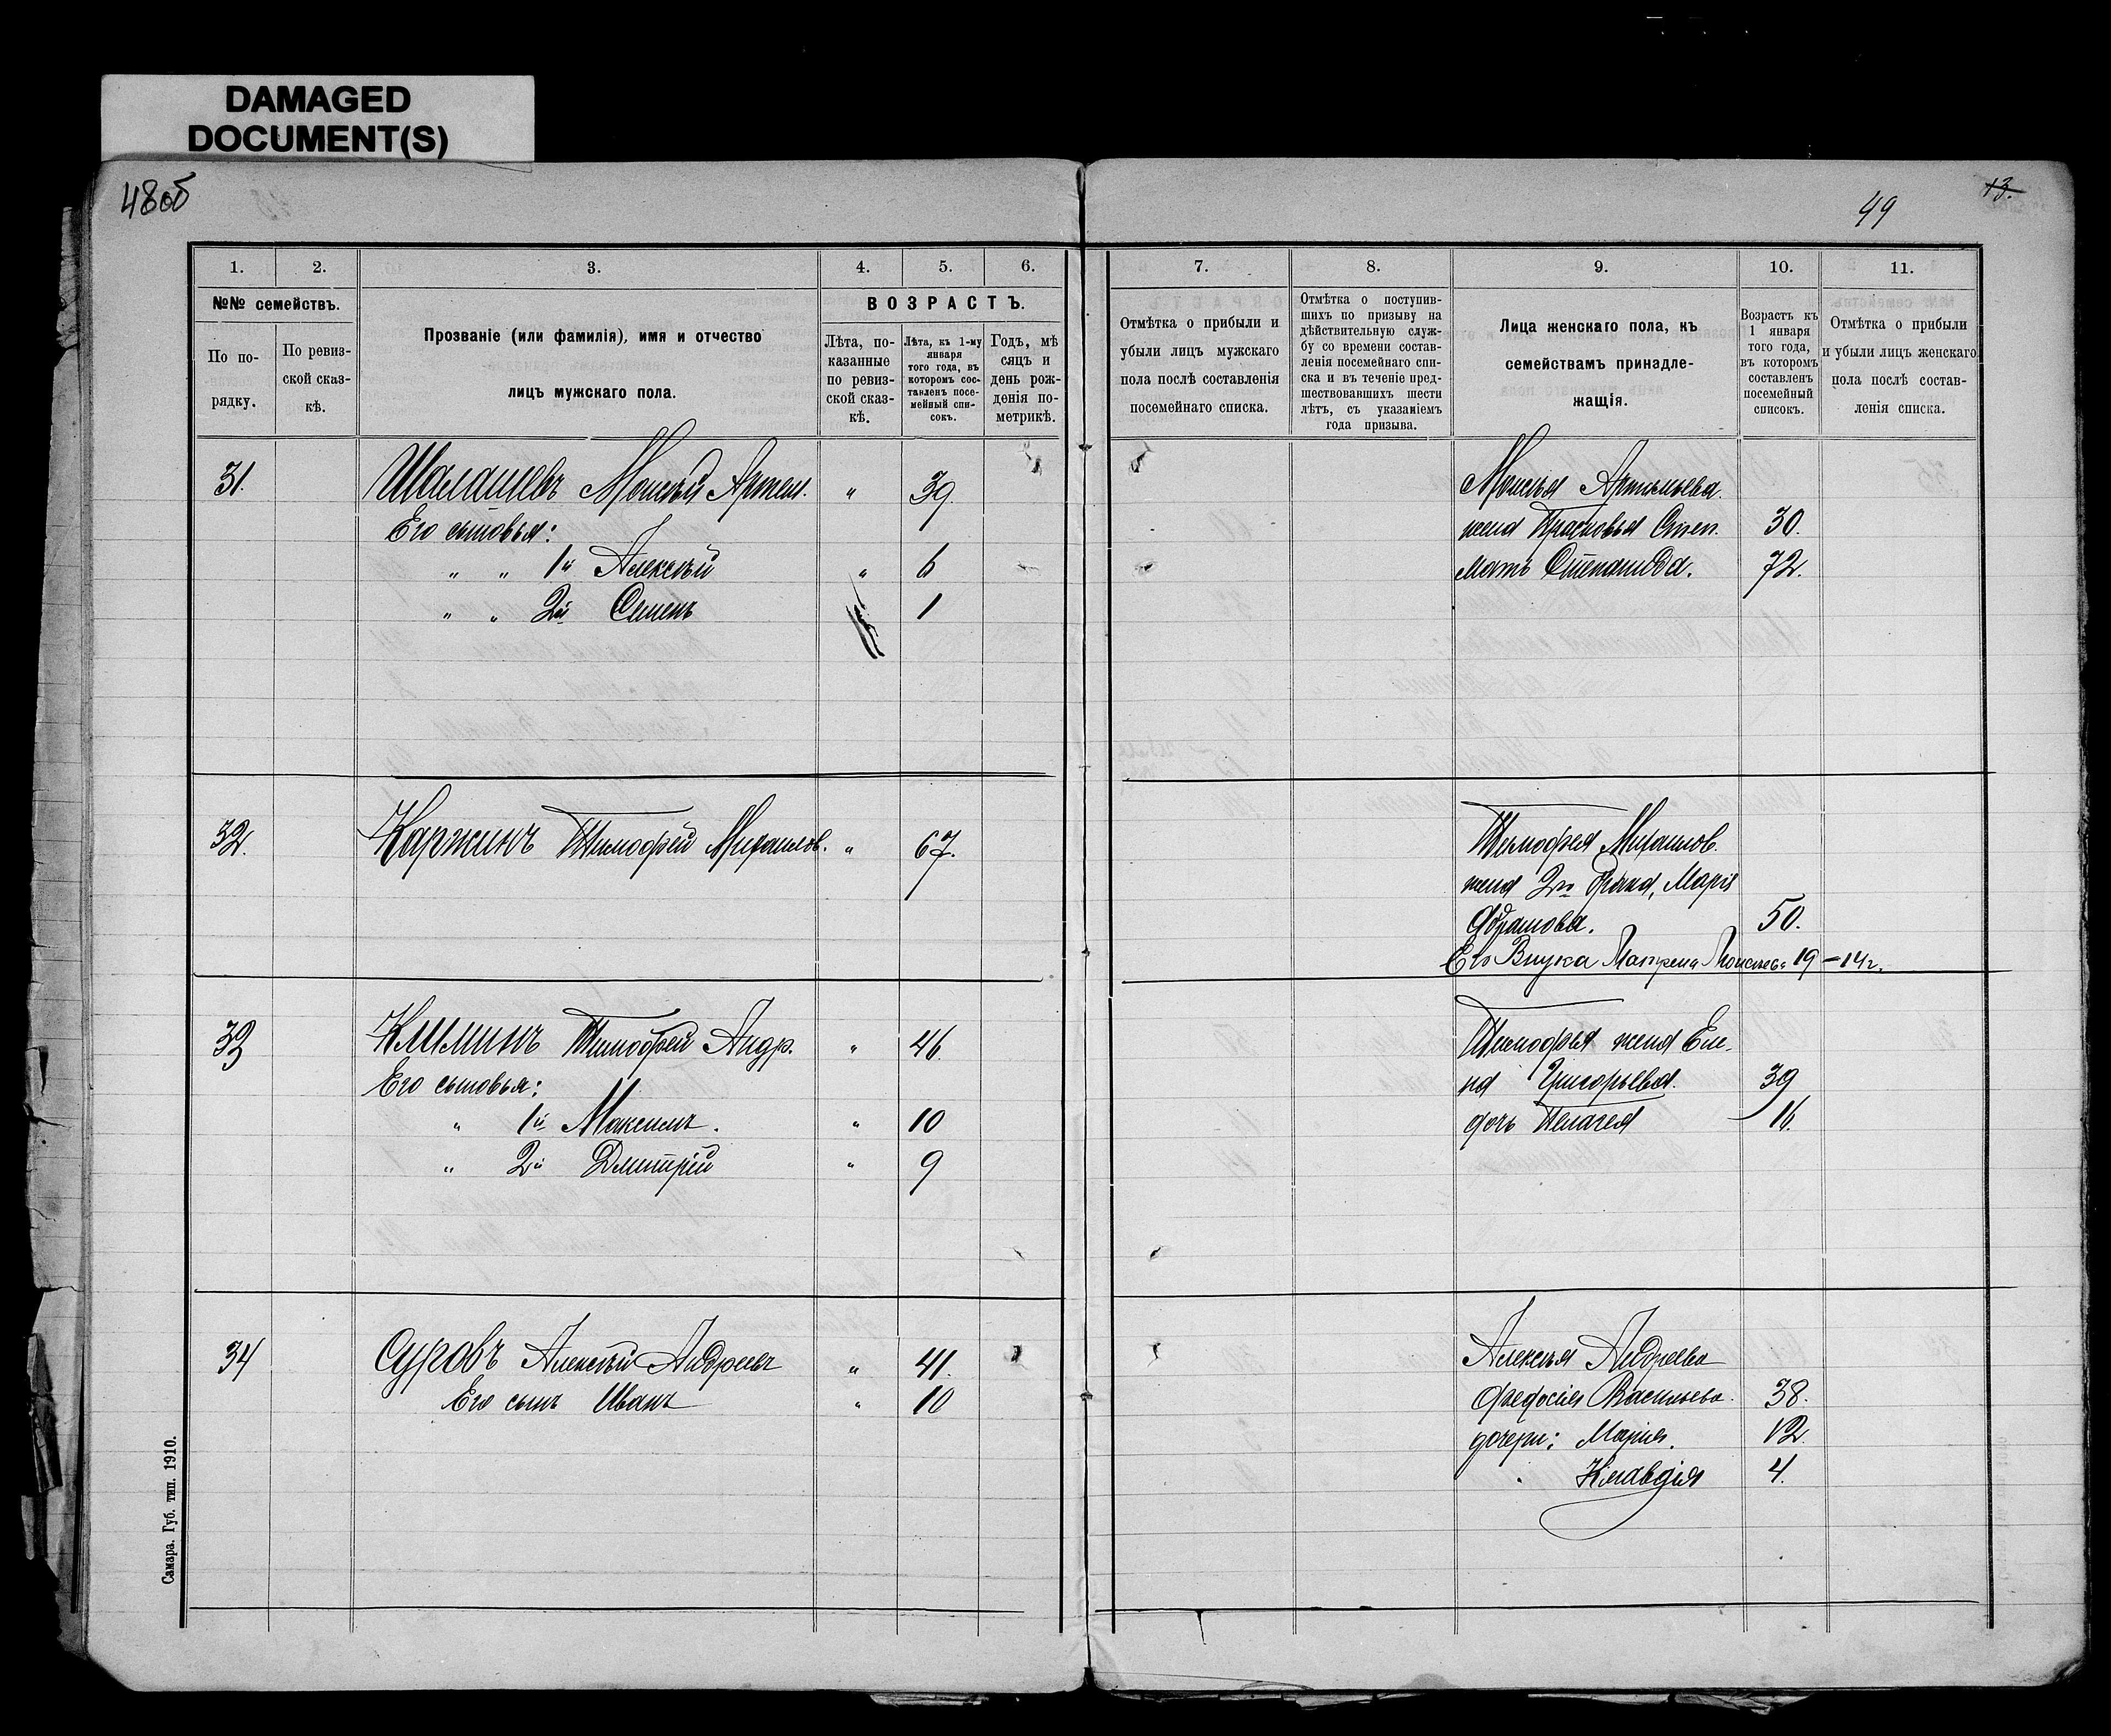 DAMAGED
DOCUMENT(S)
48об
49
13.
1.
2.
3.
4.
5.
6.
№№ семействъ.
По по-
рядку.
По ревиз-
ской сказ-
кѣ.
Прозваніе (или фамилія), имя и отчество
лицъ мужскаго пола.
ВОЗРАСТЪ.
Лѣта, по-
казанные
по ревиз-
ской сказ-
кѣ.
Лѣта, къ 1-му
января
того года, въ
которомъ сос-
тавленъ посе-
мейный спи-
сокъ.
Годъ, мѣ
сяцъ и
день рож-
денія по-
метрикѣ.
31. Шалашовъ Моисѣй Артем. „ 39.
Его сыновья:
„ „ 1й Алексѣй „ 6
„ „ 2й Семенъ 1
32. Каржинъ Тимофей Михаилов. „ 67.
33 Климинъ Тимофей Андр. „ 46.
Его сыновья:
„ 1й Максимъ. „ 10
„ 2й Дмитрій „ 9
34 Суровъ Алексѣй Андреевъ „ 41.
Его сынъ Иванъ „ 10
Самара. Губ. тип. 1910.
7.
8.
9.
10.
11.
Отмѣтка о прибыли и
убыли лицъ мужскаго
пола послѣ составленія
посемейнаго списка.
Отмѣтка о поступив-
шихъ по призыву на
дѣйствительную служ-
бу со времени состав-
ленія посемейнаго спи-
ска и въ теченіе пред-
шествовавшихъ шести
лѣтъ, съ указаніемъ
года призыва.
Лица женскаго пола, къ
семействамъ принадле-
жащія.
Возрастъ къ
1 января
того года,
въ которомъ
составленъ
посемейный
списокъ.
Отмѣтка о прибыли
и убыли лицъ женскаго
пола послѣ состав-
ленія списка.
Моисѣя Артемьева.
жена Прасковья Степ. 30.
мать Степанида. 72.
Тимофея Михаилов.
жена 2го брака, Марія
Абрамова. 50.
Его Внука Матрена Моисеева 19 – 14 г.
Тимофея жена Еле-
на Григорьева. 39
дочь Пелагея 16.
Алексѣя Андреева
Федосія Васильева. 38.
дочери: Марія. 12.
„ Клавдія 4.